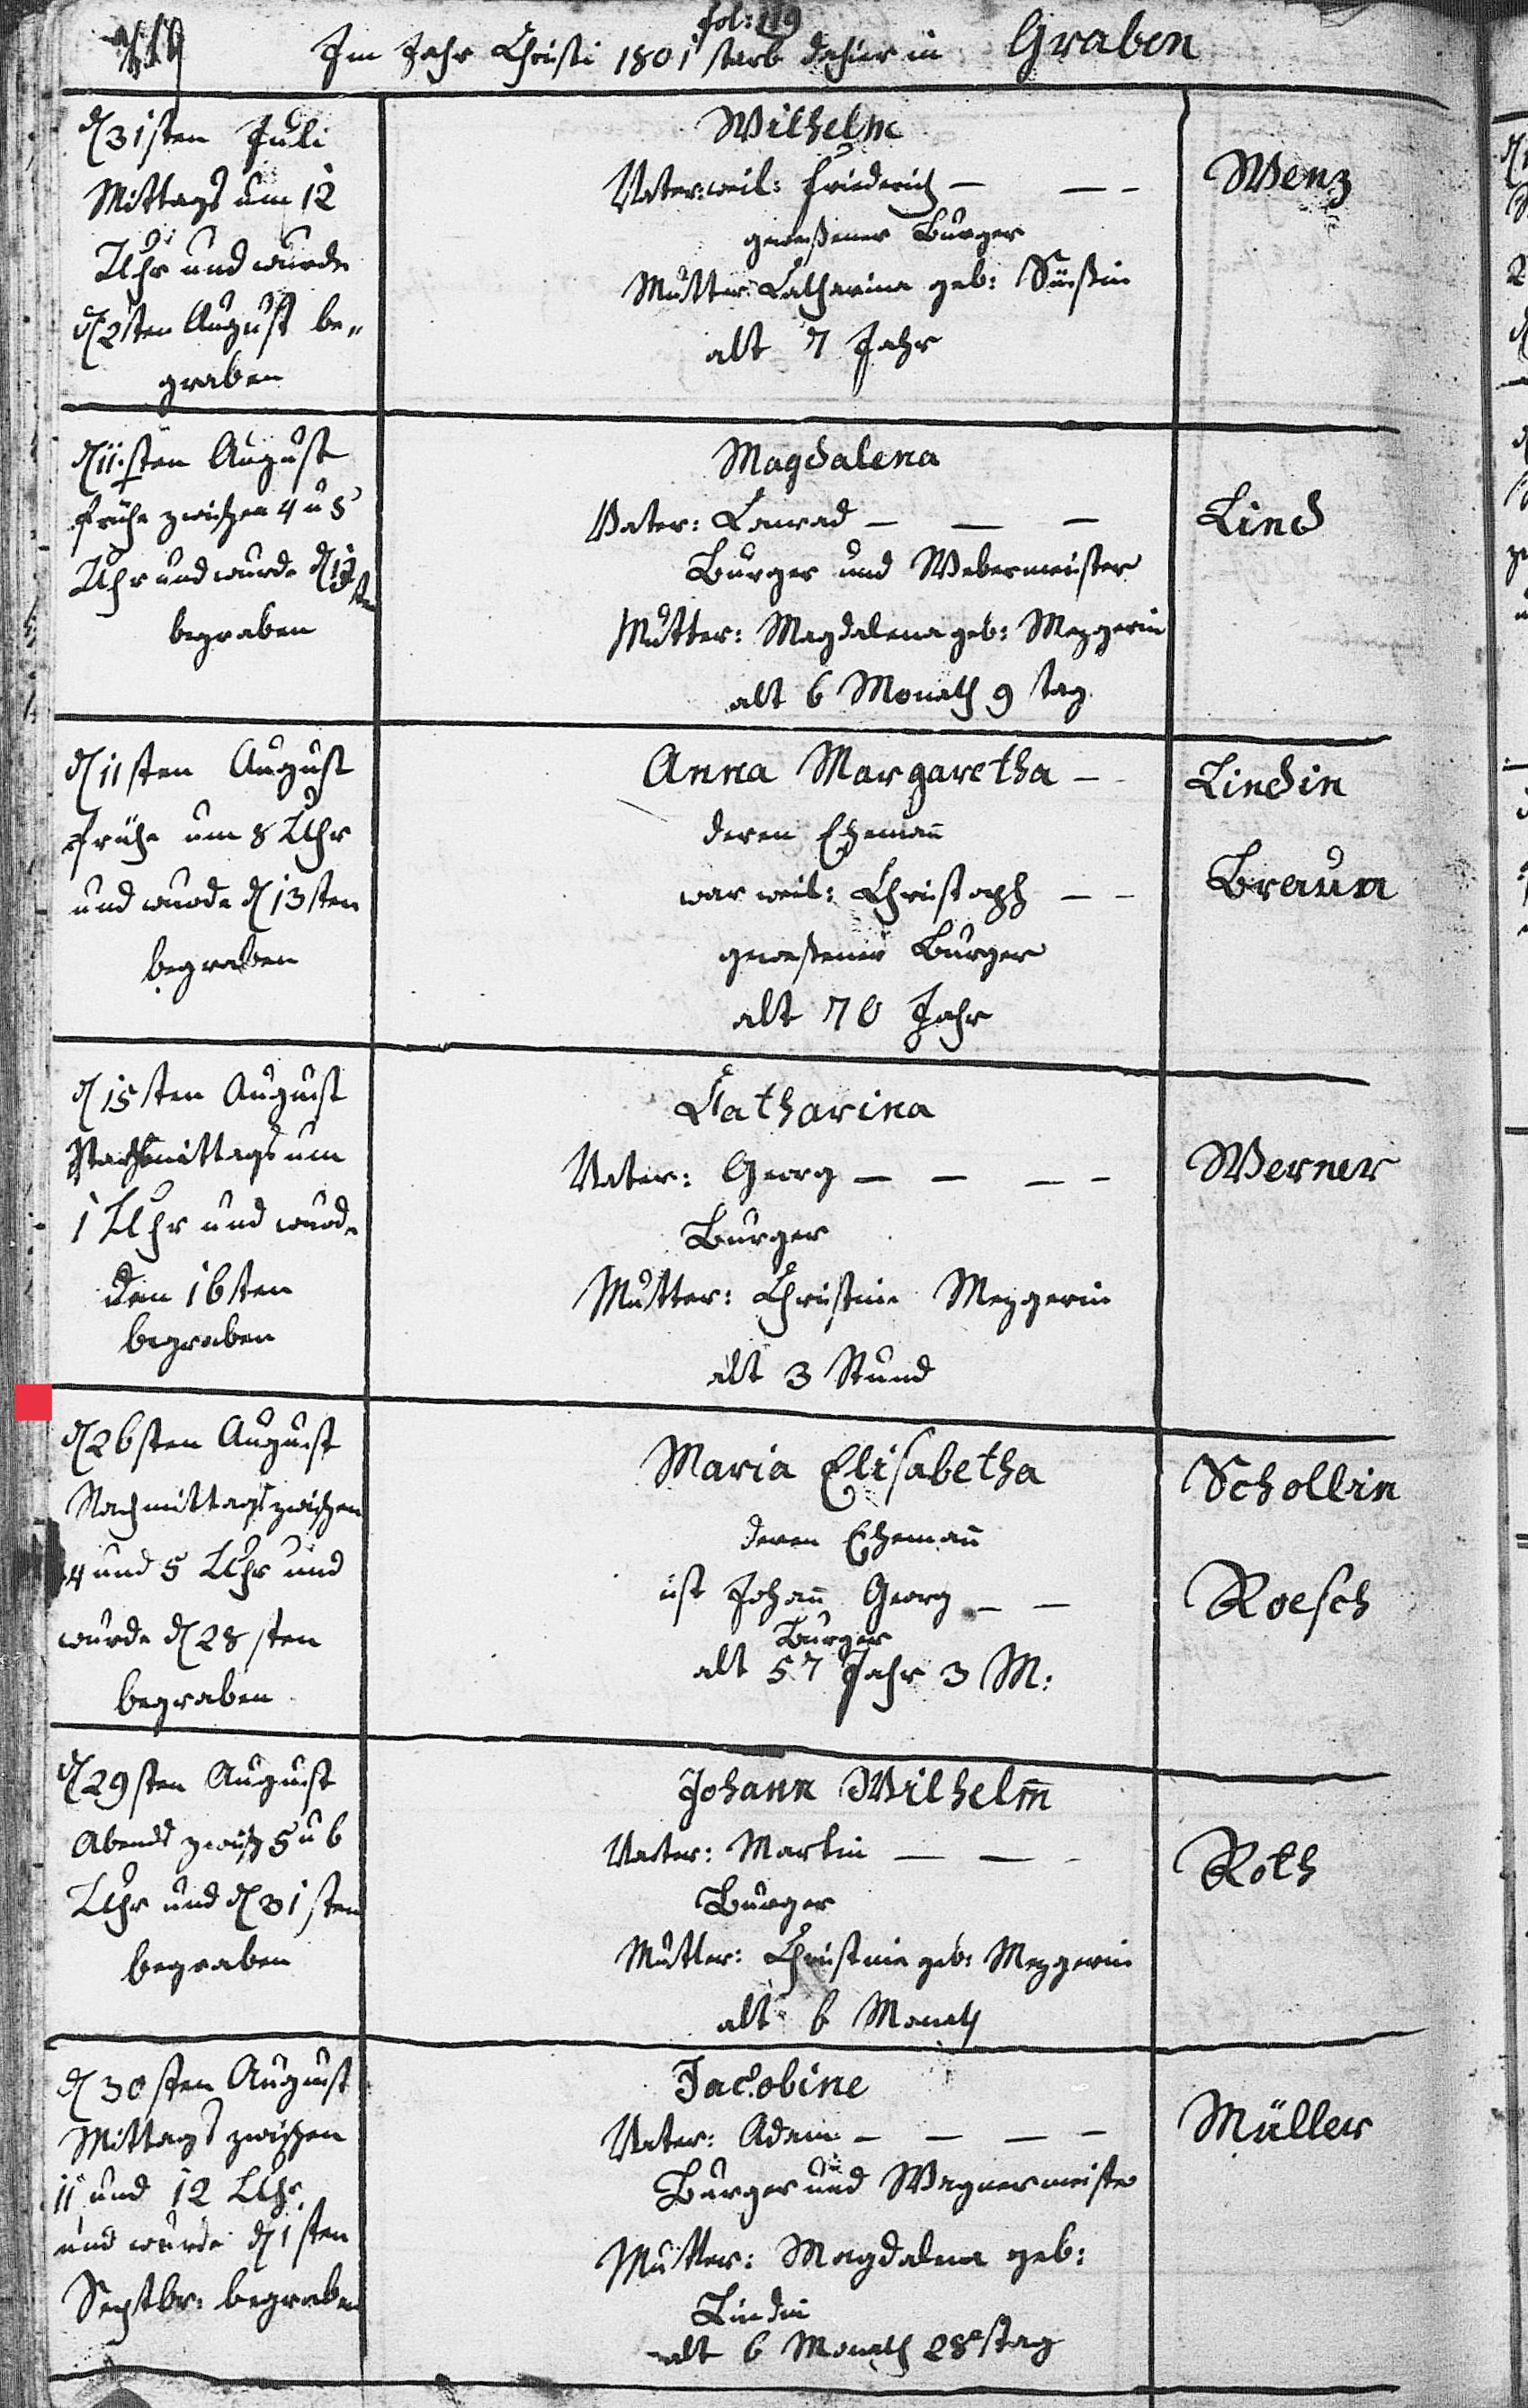 fol: 119
Im Jahr Christi 1801 starb dahier in Graben
d 31sten Juli
Mittags um 12
Uhr und wurde
d 2ten August be„
graben
Wilhelm
Vater: weil: Friederich — — –
geweßener Burger
Mutter Catharina geb: Süßin
alt 7 Jahr
Wenz
d 11.sten August
frühe zwischen 4 u 5
Uhr und wurde d 13ten
begraben
Magdalena
Vater: Conrad — — —
Burger und Webermeister
Mutter: Magdalena geb: Mezgerin
alt 6 Monath 9 tag
Lind
d 11sten August
frühe um 8 Uhr
und wurde d 13sten
begraben
Anna Margaretha —
deren Ehemañ
war weil: Christoph — –
geweßener Burger
alt 70 Jahr
Lindin
Braun
d 15sten August
Nachmittags um
1 Uhr und wurde
den 16sten
begraben
Catharina
Vater: Georg — — — –
Burger
Mutter: Christina Mezgerin
alt 3 Stund
Werner
d 26sten August
Nachmittags zwischen
4 und 5 Uhr und
wurde d 28sten
begraben
Maria Elisabetha
deren Ehemañ
ist Johañ Georg — —
Burger
alt 57 Jahr 3 M:
Schollin
Roesch
d 29sten August
Abends zwisch 5 u 6
Uhr und d 31sten
begraben
Johann Wilhelm̄
Vater: Martin — — –
Burger
Mutter: Christina geb: Mezgerin
alt 6 Monath
Roth
d 30sten August
Mittags zwischen
11 und 12 Uhr
und wurde d 1sten
Septbr: begraben
Jacobine
Vater: Adam — — — –
Burger und Wagnermeister
Mutter: Magdalena geb:
Lindin
alt 6 Monath 28 tag
Müller